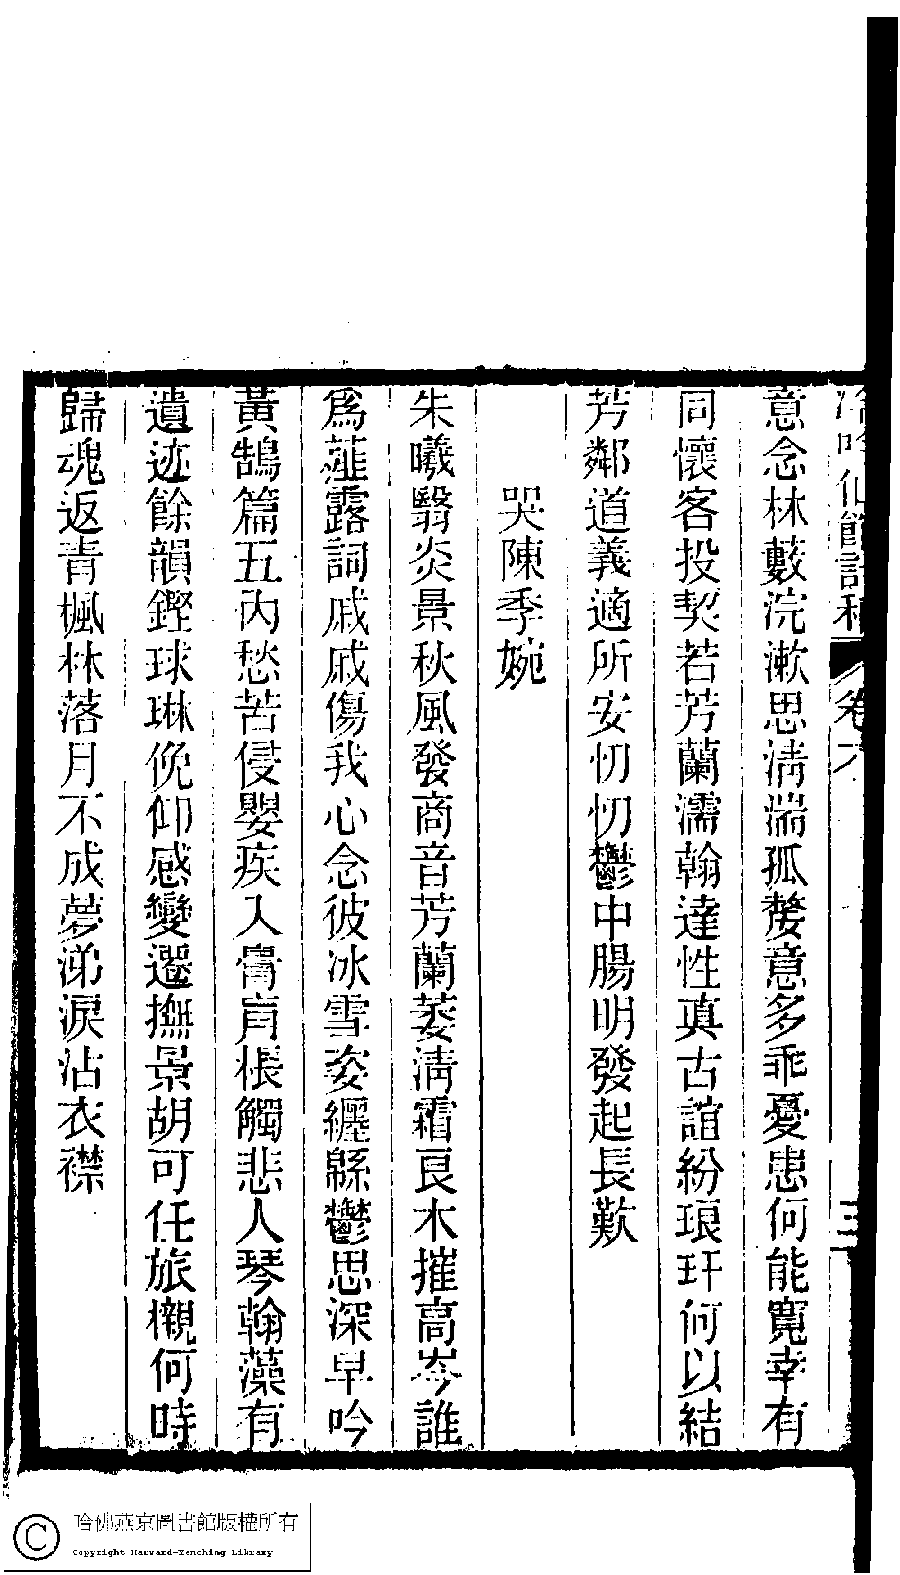 冷吟仙館詩稿 卷六 三
意念林藪浣漱思淸湍孤嫠意多乖憂患何能寬幸有
同懷客投契若芳蘭濡翰達性眞古誼紛琅玕何以結
芳鄰道義適所安忉忉鬱中腸明發起長歎
哭陳季婉
朱曦翳炎景秋風發商音芳蘭萎淸霜良木摧高岑誰
爲薤露詞戚戚傷我心念彼冰雪姿纏緜鬱思深早吟
黃鵠篇五內愁苦侵嬰疾入膏肓棖觸悲人琴翰藻有
遺迹餘韻鏗球琳俛仰感變遷撫景胡可任旅櫬何時
歸魂返靑楓林落月不成夢涕淚沾衣襟
哈佛燕京圖書館版權所有
Copyright Harvard-Yenching Library